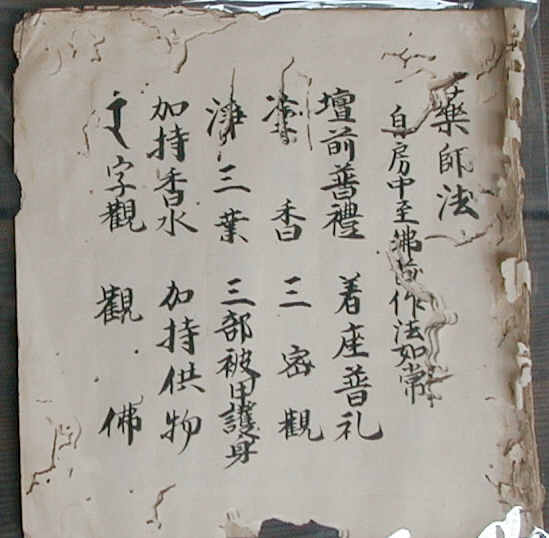 藥師法
自房中至佛前作法如常
壇前普禮 着座普礼
塗香 三密觀
淨三葉 三部被甲護身
加持香水 加持供物
字觀 觀佛